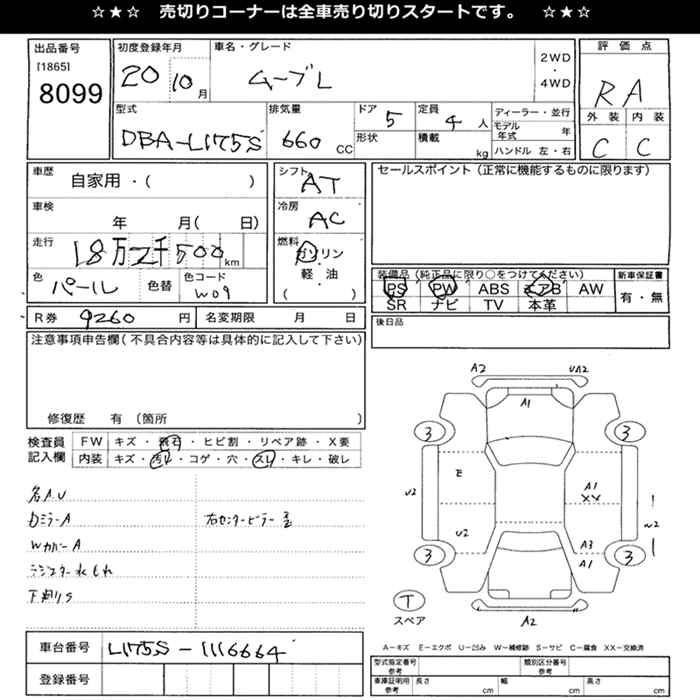 ☆★☆ 売切りコーナーは全車売り切りスタートです。 ☆★☆
出品番号
[1865]
8099
初度登録年月
20 10月
車名・グレード
ムーブL
2WD
・
4WD
評価点
RA
外装 内装
C C
型式
DBA-L175S
排気量
660 CC
ドア 5
形状
定員 4 人
積載 kg
ディーラー・並行
モデル年式 年
ハンドル 左・右
車歴
自家用・( )
車検
年 月( 日)
走行
18万2千500km
色 パール 色替
色コード
W09
シフト
AT
冷房
AC
燃料
ガソリン
・
軽・油
( )
セールスポイント(正常に機能するものに限ります)
装備品(純正品に限り○をつけてください)
PS PW ABS エアB AW
SR ナビ TV 本革
新車保証書
有・無
後日品
R券 9260 円 名変期限 月 日
注意事項申告欄(不具合内容等は具体的に記入して下さい)
修復歴 有(箇所 )
検査員
記入欄
FW キズ・飛石・ヒビ割・リペア跡・X要
内装 キズ・汚れ・コゲ・穴・スレ・キレ・破レ
各AU
DミラーA
WカバーA
右センターピラー
A2 UA2
A1
3 3
E
U2
A1
XX
U2
A3
A1
3 3
T
スペア
A2
Aーキズ Eーエクボ Uー凹み Wー補修跡 Sーサビ Cー腐食 XXー交換済
車台番号 L175S-1116664
登録番号
型式指定番号
参考
類別区分番号
参考
車庫証明用
参考
長さ cm 幅 cm 高さ cm